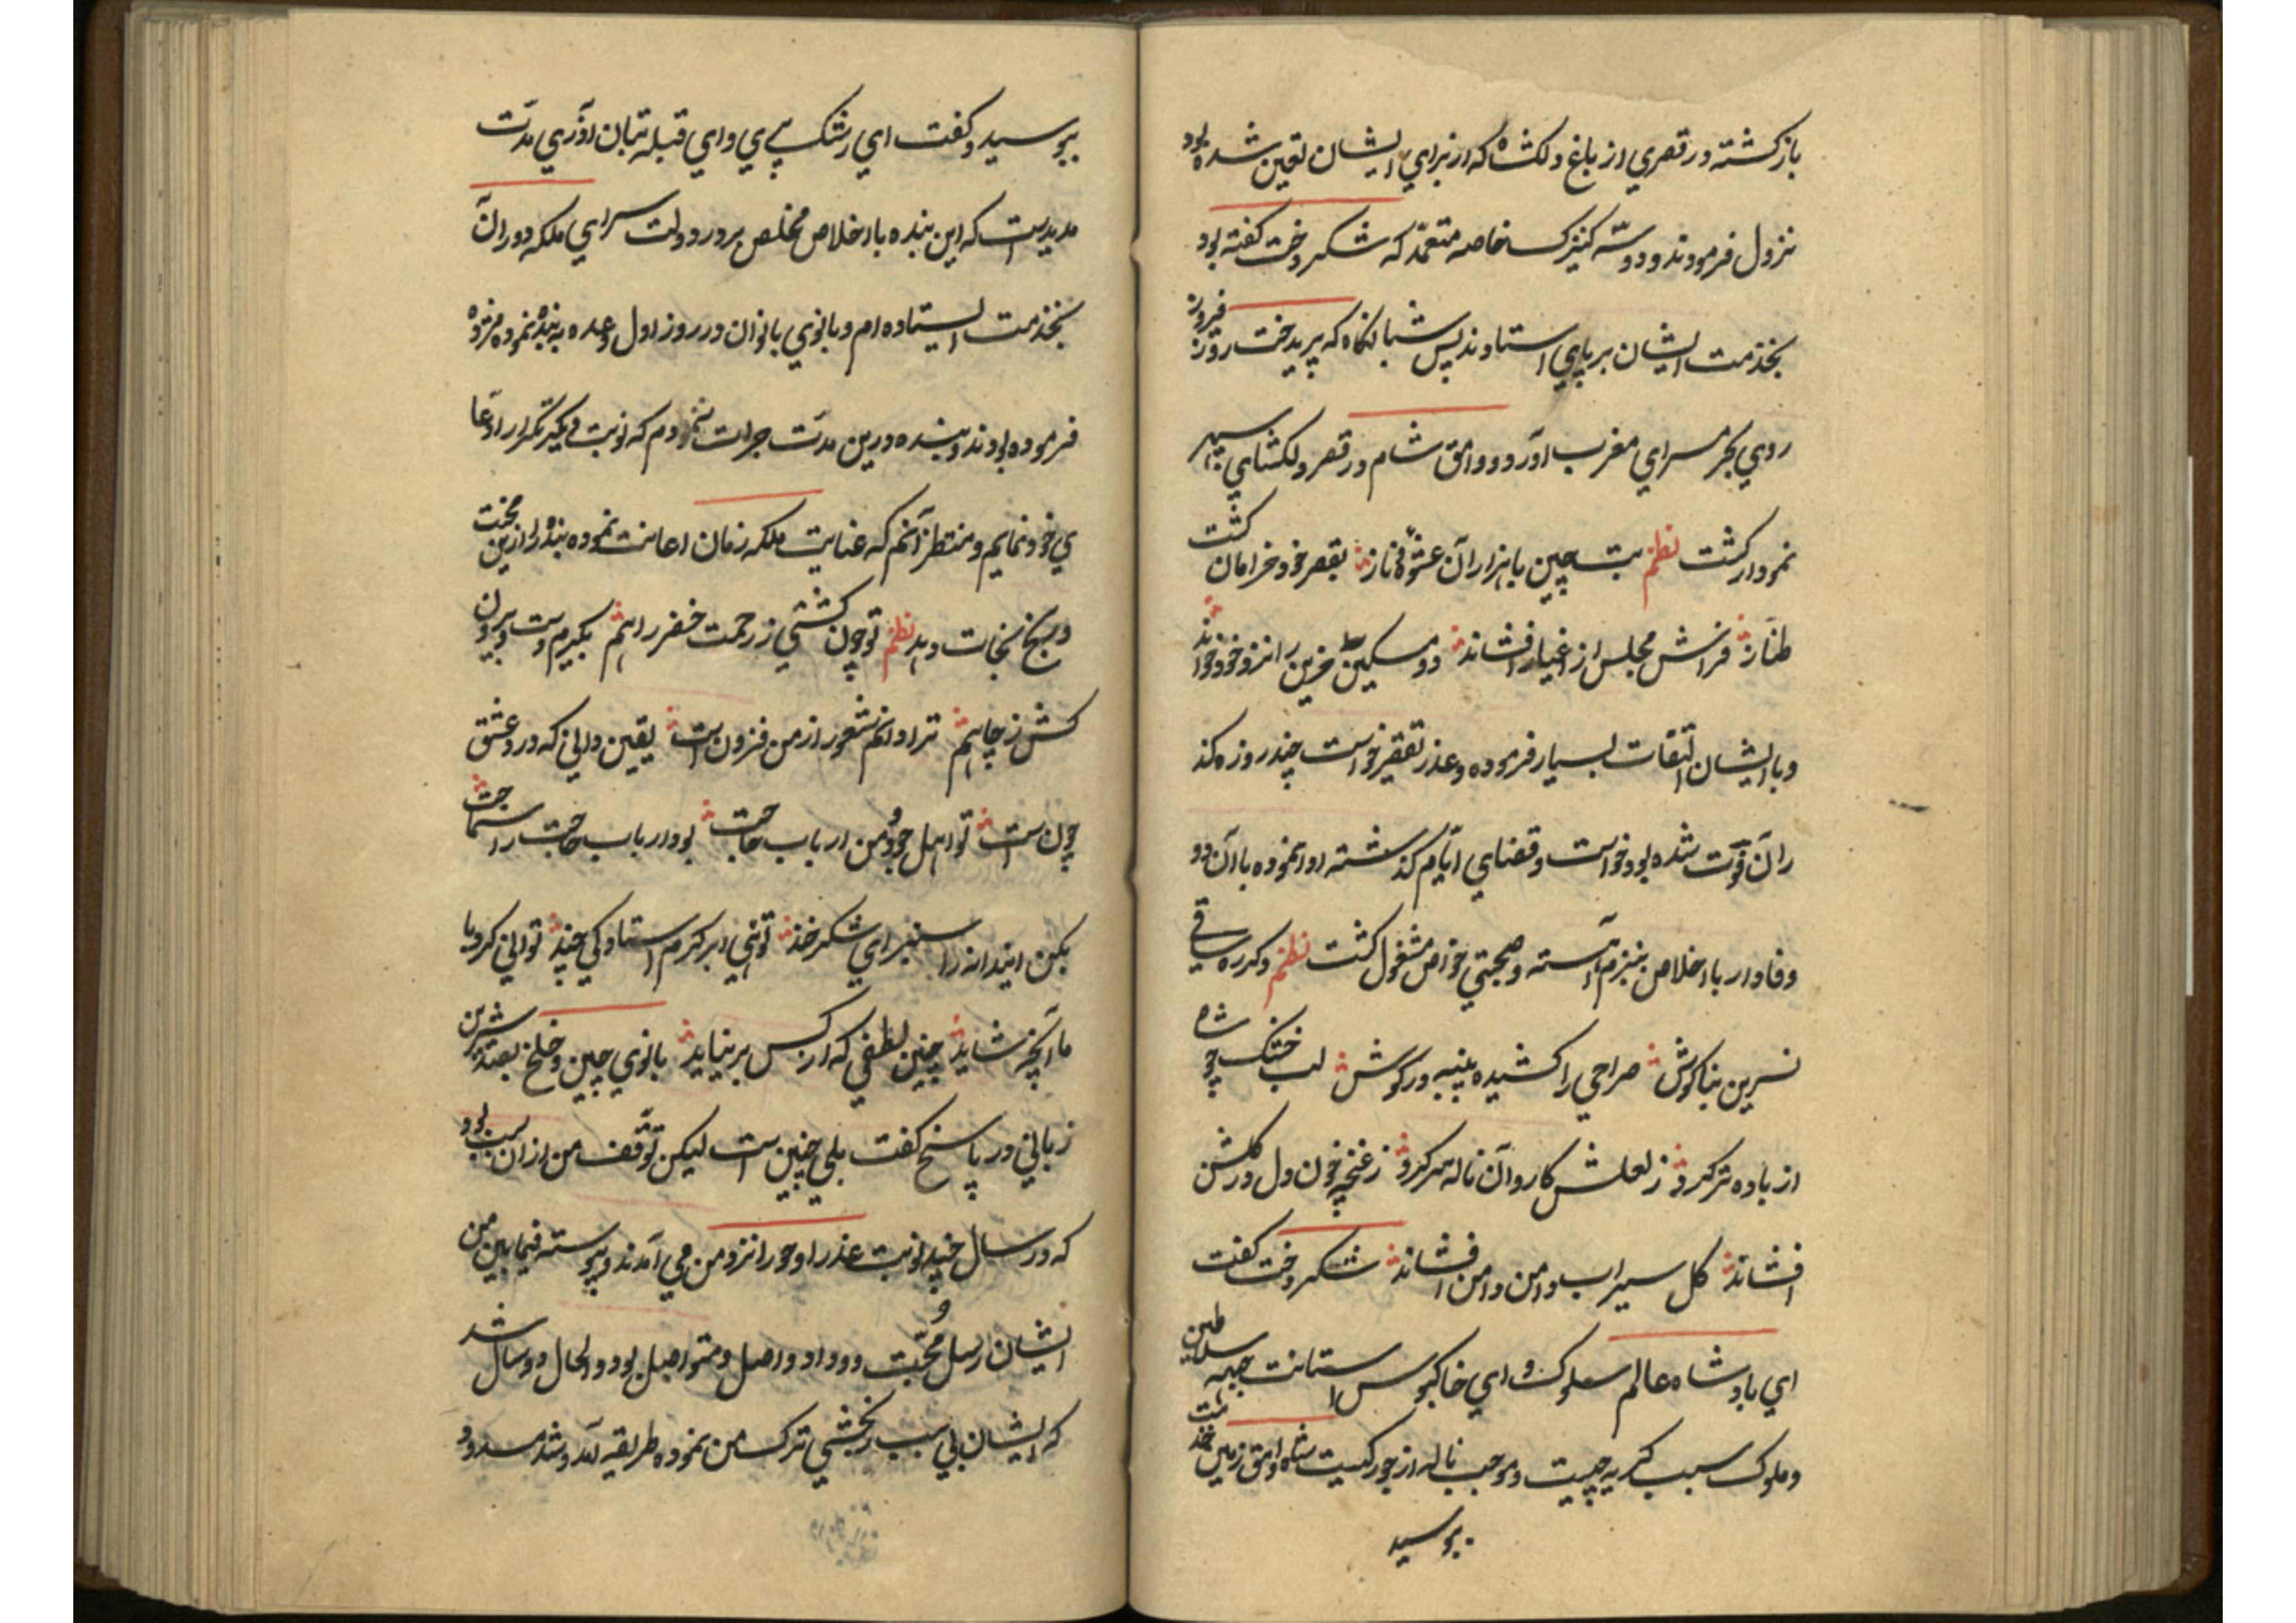 بازگشته در قصری از باغ دلکشاه که از برای ایشان تعین شده بود
نزول فرمودند و دو سه کنیزک خاصه معتمد که شکر دخت گفته بود
بخدمت ایشان بر پای استادند پس شبانگاه که پریدخت روز فروز
روی بحرمسرای مغرب آورد و وامق شام در قصر دلکشای سپهر
نمودار گشت نظم بت چین با هزاران عشوه و ناز بقصر خود خرامان گشت
طناز فراش مجلس از اغیار افشاند دو مسکین حزین را نزد خود خواند
و با ایشان التفات بسیار فرموده و عذر تقصیر خواست چند روزه کذ
ران فوت شده بود خواست و قضای ایام گذشته ادا نموده با آن دو
وفادار با اخلاص ببزم آراسته و صحبتی خواص مشغول گشت نظم دکر ره ساقی
نسرین بناگوش صراحی را کشیده پنبه در گوش لب خشک چو شاه
از باده تر کرد ز لعلش کاروان ناله سر کرد ز غنچه خون دل در گلشن
افشاند گل سیراب دامن دامن افشاند شکر دخت گفت
ای پادشاه عالم سلوک و ای خاکبوس استانت جبهه سلاطین
و ملوک سبب گریه چیست و موجب ناله از جور کیست شاه وامق زمین خدمت
ببوسید
ببوسید و گفت ای رشک پری و ای قبله بتان آذری مدت
مدیدست که این بنده با اخلاص مخلص بر در دولت سرای ملکه دوران
بخدمت ایستاده ام و بانوی بانوان در روز اول وعده به بنده نموده مژده
فرموده بودند و بنده درین مدت جرات ننمودم که نوبت دیگر تکرار ادعا
ی خود نمایم و منتظر آنم که عنایت ملکه زمان اعانت نموده بنده را ازین محنت
و رنج نجات دهد نظم تو چون کشتی ز رحمت خضر راهم بگیرم دست و بیرون
کش ز چاهم ترا دانم شعور از من فزون است یقین دانی که درد عشق
چون است تو اهل جود و من ارباب حاجت بود ارباب حاجت را سماجت
بکن ایندانه را سنبر ای شکر خند تو نهی ابر کرم استادکی چند توانی کرد با
ما آنچه شاید چنین لطفی که از کس بر نیاید بانوی چین و خلخ بصد شیرین
زبانی در پاسخ گفت بلی چنین است لیکن توقف من از ان سبب بود
که در سال چند نوبت عذرا و حورا نزد من می آمدند و پیوسته فیمابین من
و ایشان رسل محبت و وداد واصل و متواصل بود و الحال دو سال شد
که ایشان بی سبب رنجشی ترک من نموده طریقه آمد و شد مسدود